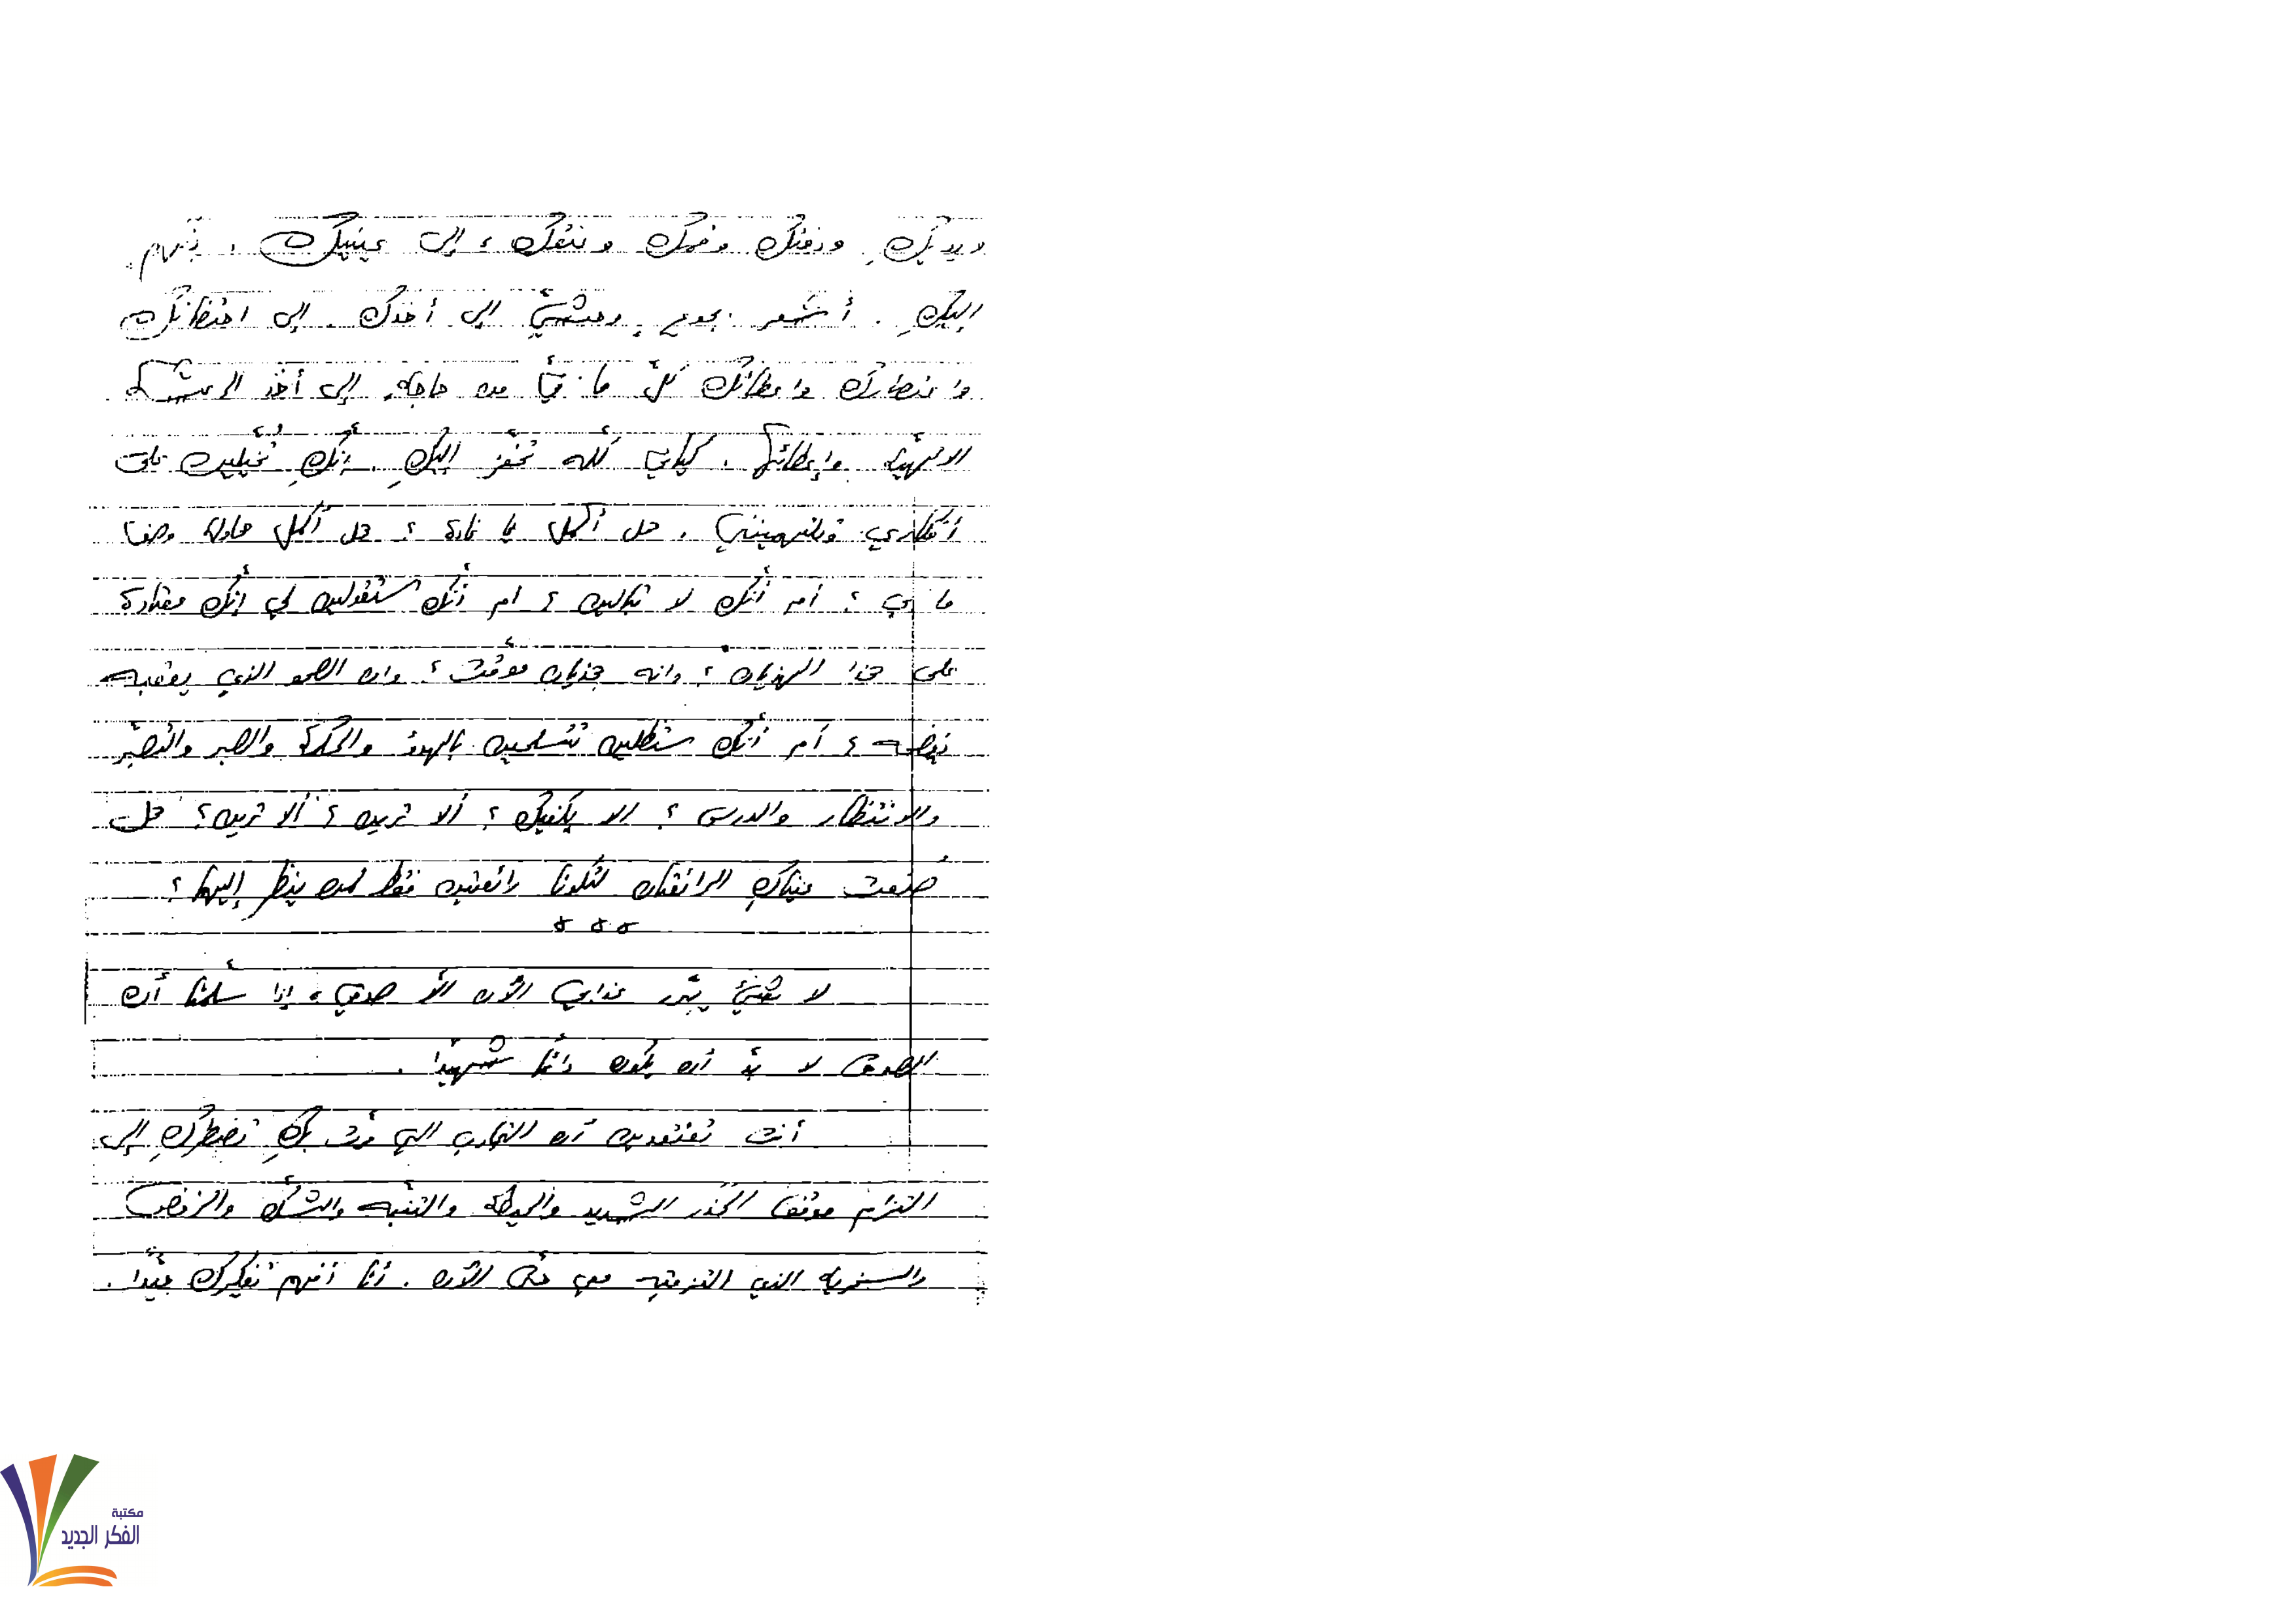 ويديكِ، وذقنك وفمك وعنقك، إلى عينيك. بنهم
إليكِ. أشعر بجوع وحشيّ إلى أخذك. إلى احتضانك
وانتظارك وإعطائك كلّ ما فيّ من حاجة إلى أخذ الرعشة
الإلهية وإعطائها. كياني كله تحفّز إليكِ. إنكِ تخيلين على
أفكاري وتلتهمينني. هل أكمل يا غادة؟ هل أكمل محاولة وصف
ما بي؟ أم أنك لا تبالين؟ أم أنك ستقولين لي إنك معتادة
على هذا الهذيان؟ وانه هذيان موقت؟ وان الصحو الذي يعقبه
يفضحه؟ أم أنك ستظلين تتسلحين بالهدوء والحكمة والصبر والتصبّر
والانتظار والدرس؟ ألا يكفيك؟ ألا ترين؟ ألا ترين؟ هل
صُنعت عيناكِ الرائعتان لتكونا رائعتين فقط لمن ينظر إليهما؟
* * *
لا شيء يبرّر عذابي الآن الّا صدقي، إذا سلمنا أن
الصدق لا بدّ أن يكون دائماً شهيداً.
أنت تعتقدين أن التجارب التي مرّت بكِ تضطركِ إلى
التزام موقف الحذر الشديد والحيطة والتنبّه والشكّ والرفض
والسخرية الذي التزمتِه معي حتى الآن. أنا أفهم تفكيرك جيّداً.
مكتبة
الفكر الجديد